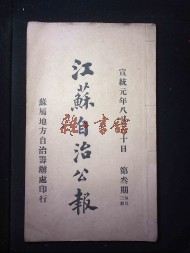 宣統元年八月十日 第叁期
江蘇自治公報
蘇屬地方自治籌辦處印行